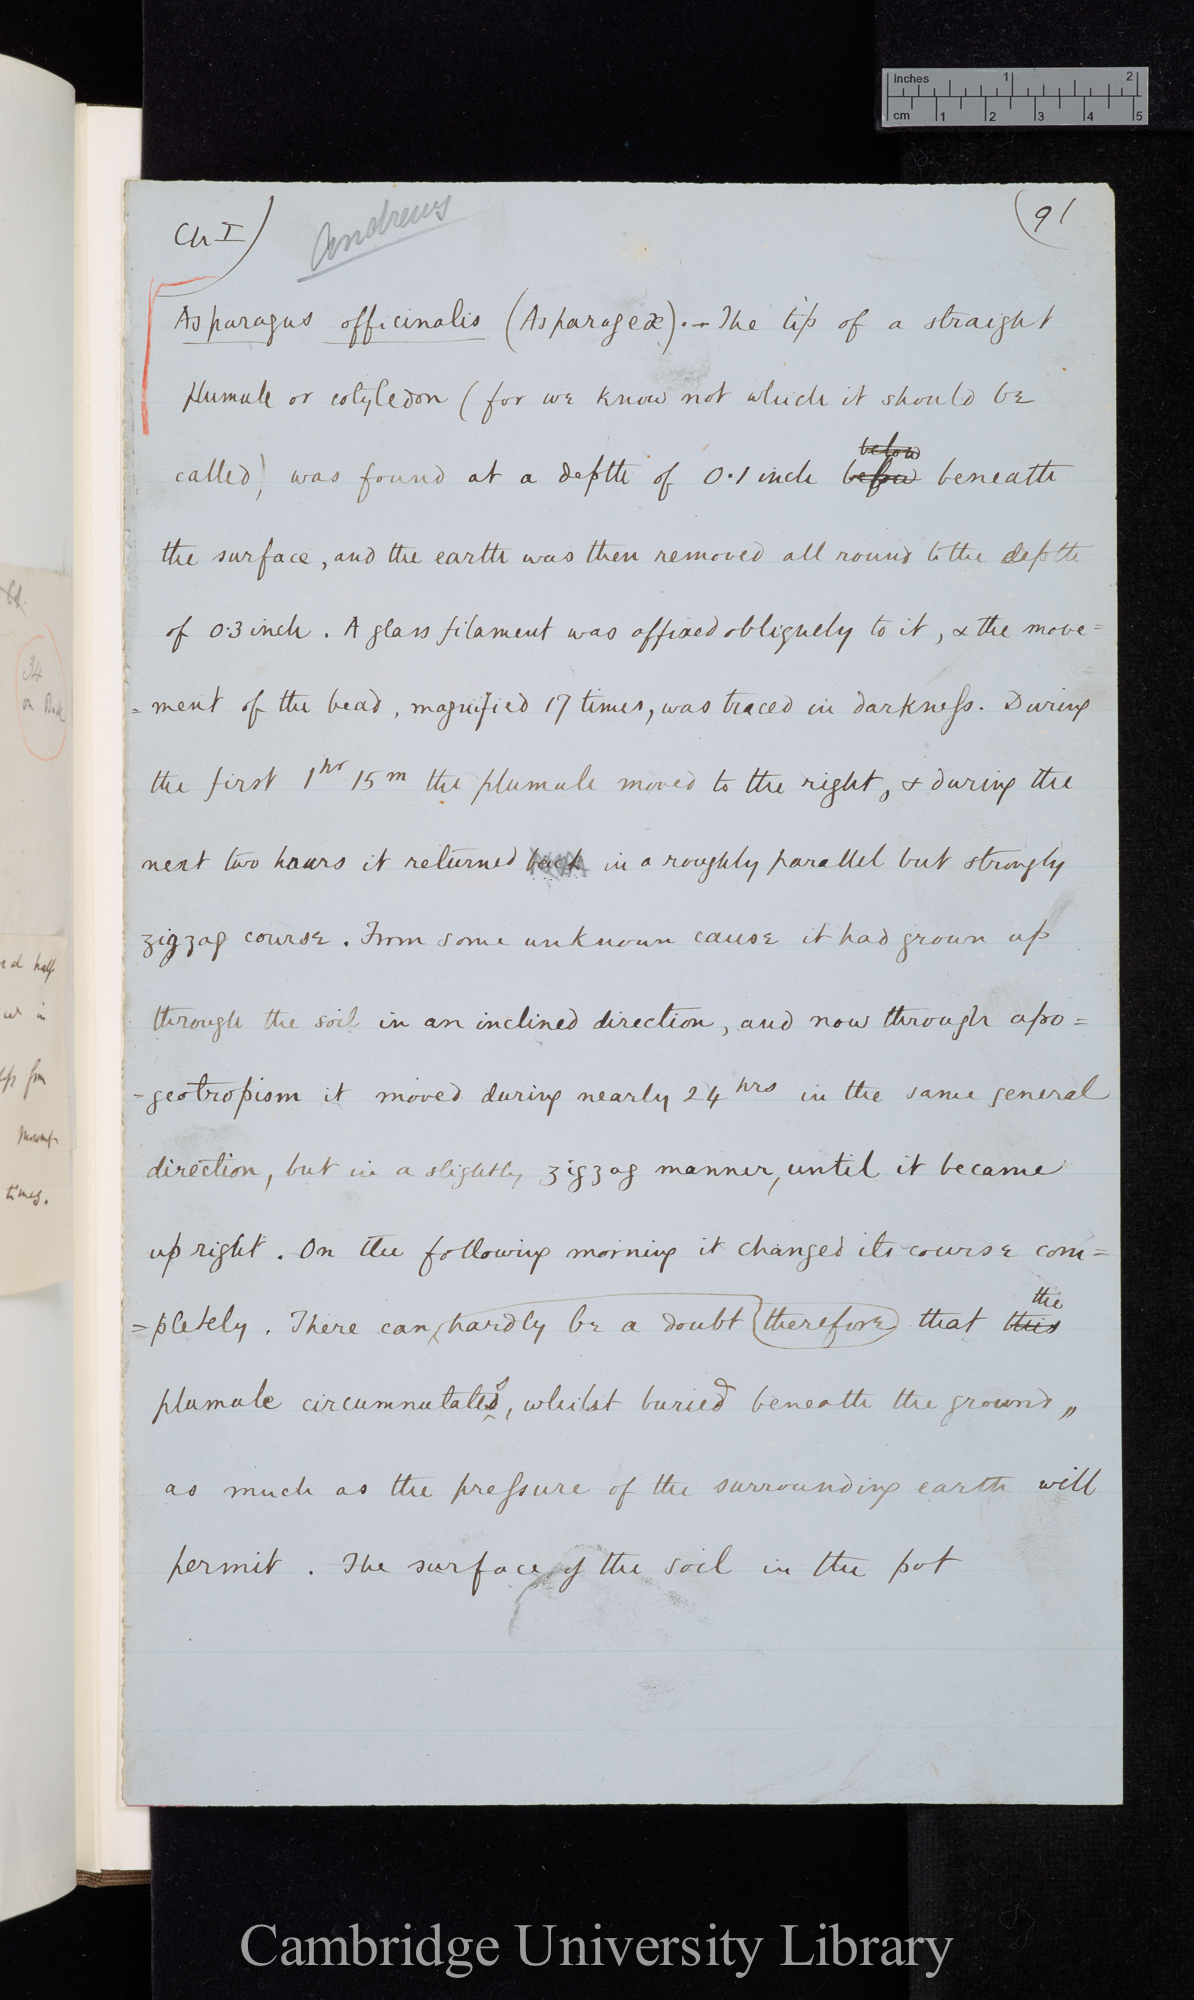 Inches 1 2
cm 1 2 3 4 5
Ch I) Andrews (91
Asparagus officinalis (Asparageæ).— The tip of a straight
plumule or cotyledon (for we know not which it should be
below
called) was found at a depth of 0.1 inch below beneath
the surface, and the earth was then removed all round to the depth
of 0.3 inch. A glass filament was affixed obliquely to it, & the move=
=ment of the bead, magnified 17 times, was traced in darkness. During
the first 1hr 15m the plumule moved to the right, & during the
next two hours it returned back in a roughly parallel but strongly
zigzag course. From some unknown cause it had grown up
through the soil in an inclined direction, and now through apo=
=geotropism it moved during nearly 24hrs in the same general
direction, but in a slightly zigzag manner, until it became
upright. On the following morning it changed its course com=
the
=pletely. There can hardly be a doubt therefore that this
plumule circumnutates, whilst buried beneath the ground,,
as much as the pressure of the surrounding earth will
permit. The surface of the soil in the pot
34
on Back
half
in
from
times.
Cambridge University Library